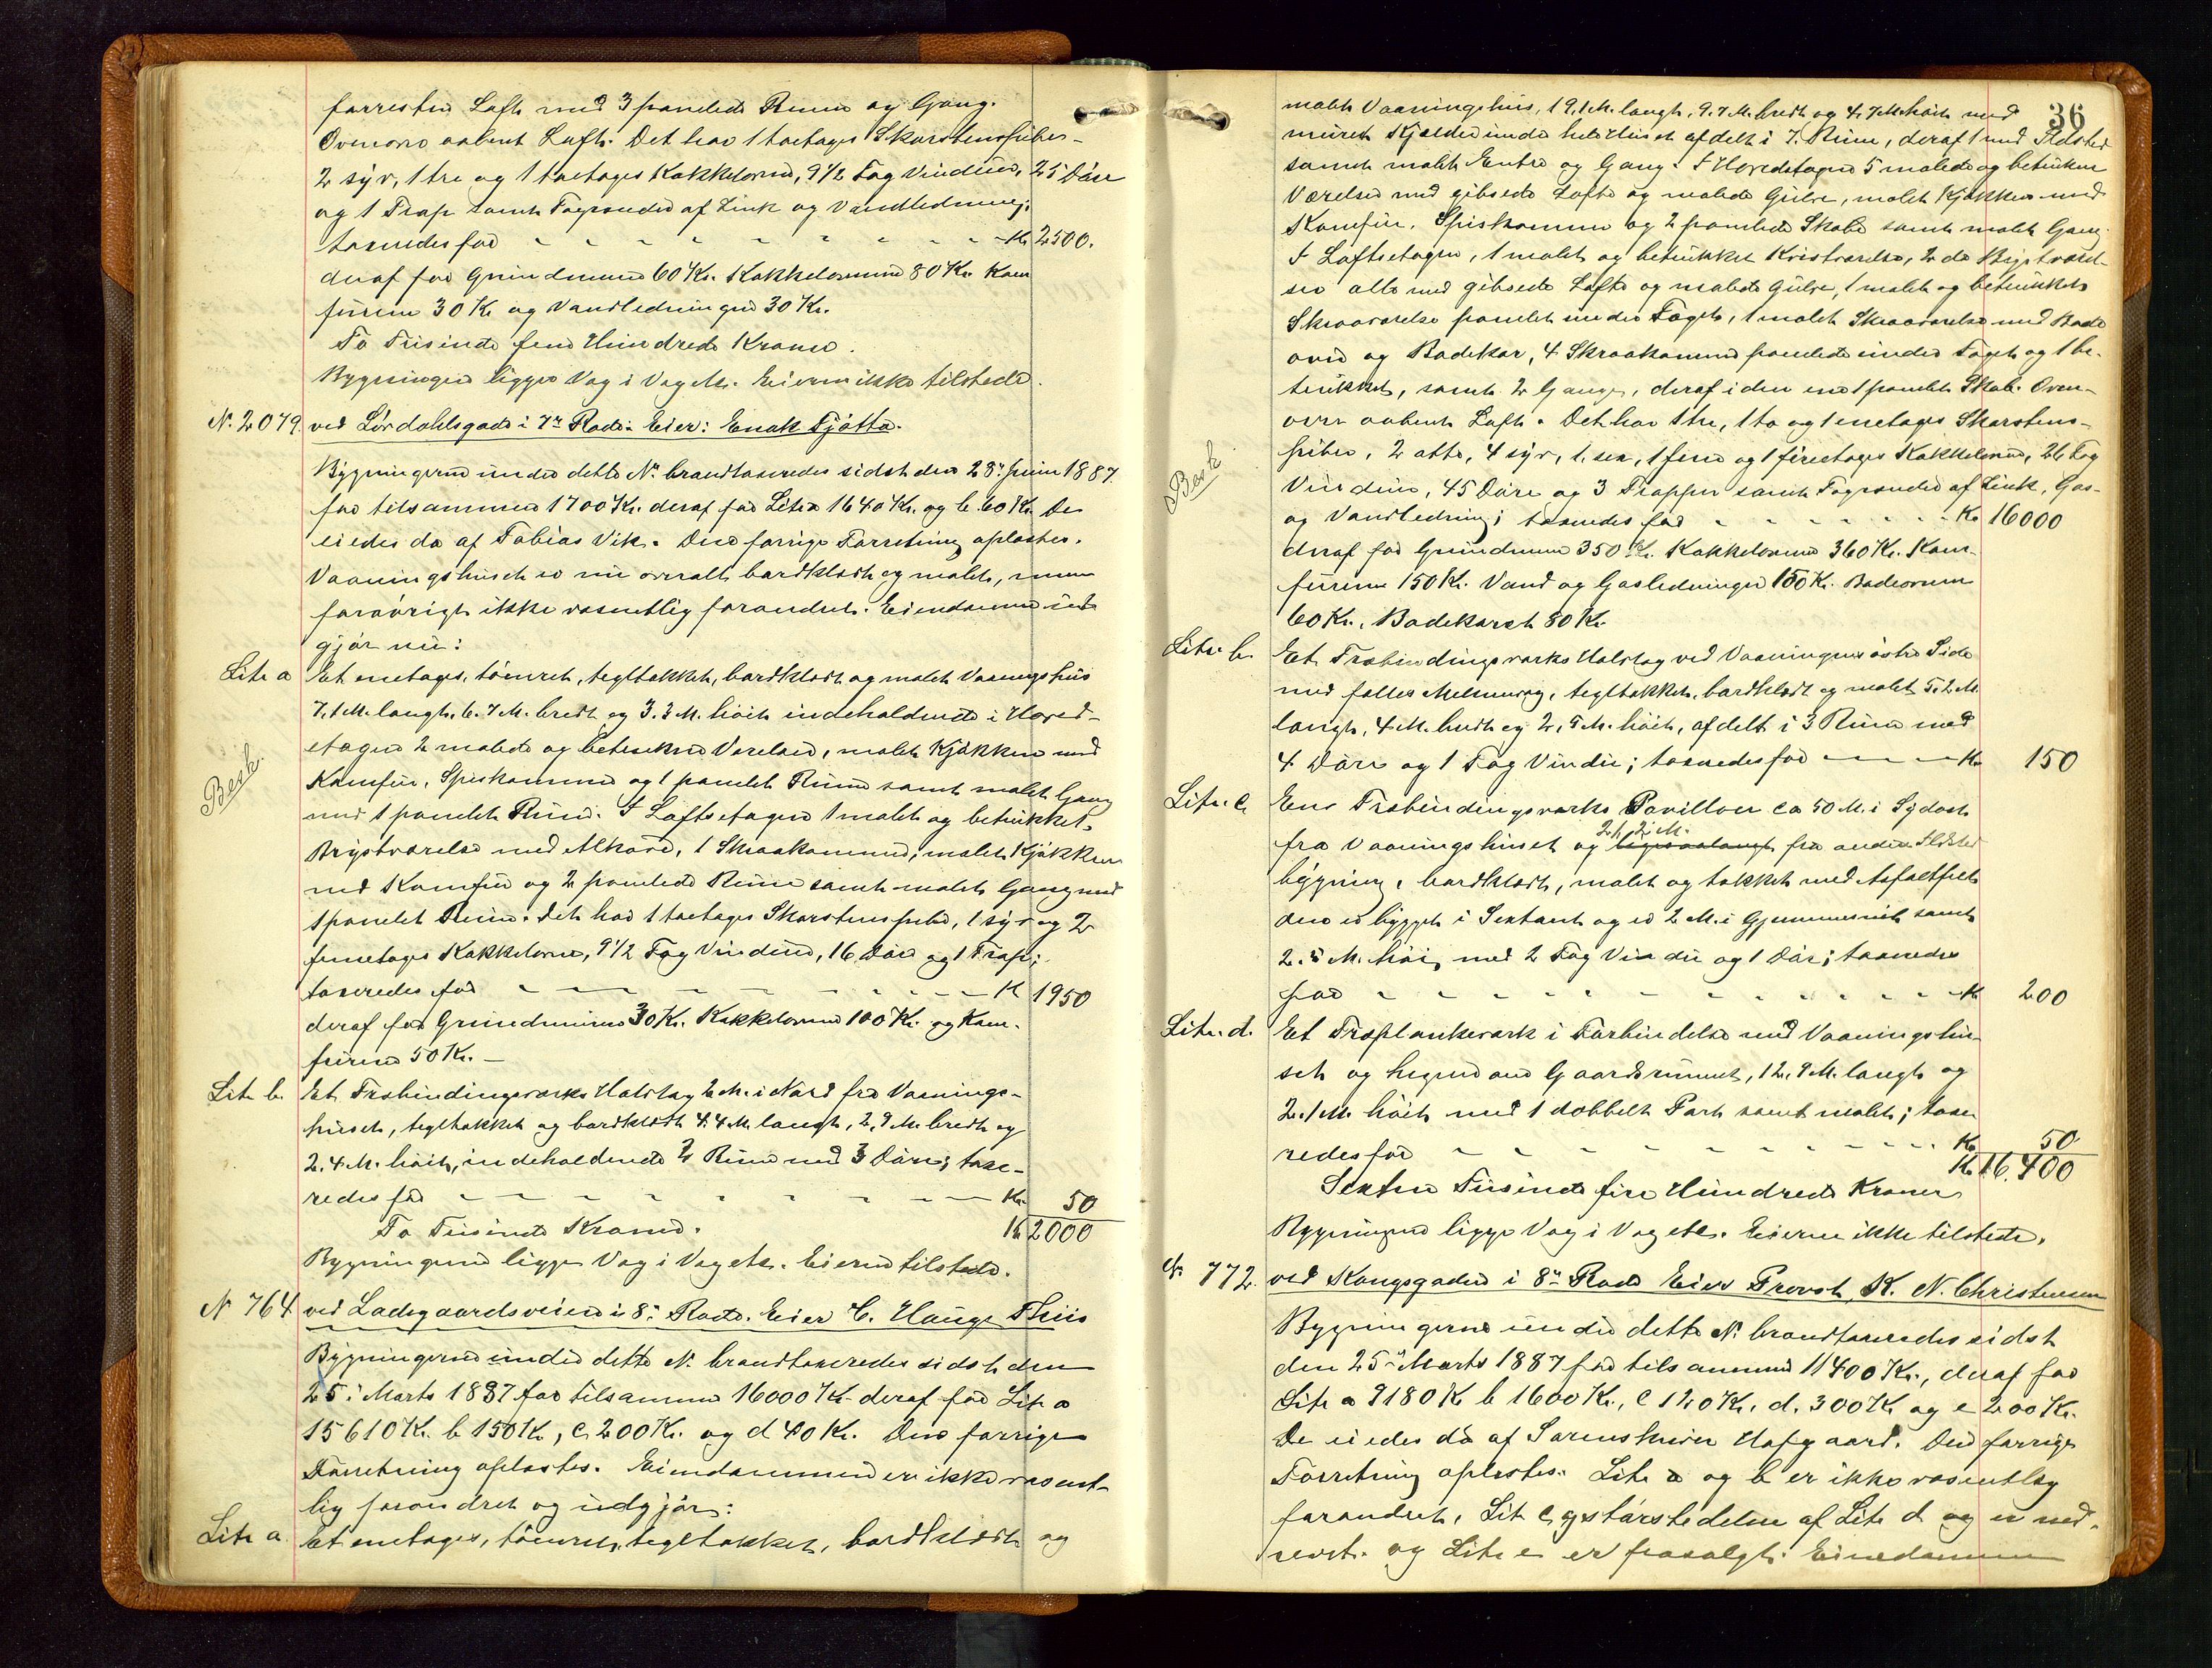 forresten Loft med 3 panelede Rum og Gang.
Ovenover aabent Loft. Det har 1 toetages Skorstenspiber
2 syv, 1 tre og 1 toetages Kakkelovne, 9 1/2 Fag Vinduer, 25 Døre
og 1 Trap samt Tagrender af Zink og Vandledning;
taxeredes for - - - - - - - - Kr 2500.
deraf for Grundmuren 60 Kr. Kakkelovnene 80 Kr. Kom
furene 30 Kr og Vandledningen 30 Kr.
To Tusinde fem Hundrede Kroner.
Bygningen ligger Væg i Væg etc. Eieren ikke tilstede.
N. 2079. ved Lørdahlsgade i 7de Rode. Eier: Enok Tjøtta.
Bygningerne under dette No brandtaxeredes sidst den 28. Juni 1887
for tilsammen 1700 Kr. deraf for Litr a 1640 Kr. og b. 60 Kr. De
eiedes da af Tobias Vik. Den forrige Forretning oplæstes.
Vaaningshuset er nu overalt bordklædt og malet, men
forøvrigt ikke væsentlig forandret. Eiendommen ud
gjør nu:
Litr a Et enetages, tømret, tegltækket, bordklædt og malet Vaaningshus
7,1 M. langt, 6.7 M. bredt og 3.3 M. høit indeholdende i Hoved-
etagen 2 malede og betrukne Værelser, malet Kjøkken med
Besk.
Komfur, Spiskammer og 1 panelet Rum samt malet Gang
med 1 panelet Rum. I Loftsetagen 1 malet og betrukket
Brystværelse med Alkove, 1 Skraakammer, malet Kjøkken
med Komfur og 2 panelede Rum samt malet Gang med
1 panelet Rum. Det har 1 toetages Skorstenspibe, 1 syv og 2
femetages Kakkelovne, 9 1/2 Fag Vinduer, 16 Døre og 1 Trap;
taxeredes for - - - - - - - Kr 1950
deraf for Grundmuren 30 Kr. Kakkelovnene 100 Kr. og Kom-
furene 50 Kr. —
Litr b. Et Træbindingsværks Halvtag 2 M. i Nord fra Vaanings-
huset, tegltækket og bordklædt 4.4 M. langt, 2,9 M. bredt og
2.4 M. høit, indeholdende 2 Rum med 3 Døre; taxe-
redes for - - - - - - - - Kr. 50
To Tusinde Kroner. Kr 2000
Bygningerne ligger Væg i Væg etc. Eieren tilstede.
N 764 ved Ladegaardsveien i 8. Rode. Eier C. Hauge Thiis
Bygningerne under dette No. brandtaxeredes sidst den
25. Marts 1887 for tilsammen 16000 Kr. deraf for Litr a
15610 Kr. b 150 Kr, c. 200 Kr. og d 40 Kr. Den forrige
Forretning oplæstes. Eiendommen er ikke væsent-
lig forandret og udgjør:
Litr a. Et enetages, tømret, tegltækket, bordklædt og
36
malet Vaaningshus, 19,1 M. langt, 9.7 M. bredt og 4,7 M. høit med
muret Kjælder under hele Huset afdelt i 7 Rum, deraf 1 med Ildsted
samt malet Entre og Gang. I Hovedetagen 5 malede og betrukne
Værelser med gibsede Lofte og malede Gulve, malet Kjøkken med
Komfur. Spiskammer og 2 panelede Skabe samt malet Gang.
I Loftsetagen, 1 malet og betrukket Kvistværelse, 2 do Brystværel-
ser alle med gibsede Lofte og malede Gulve, 1 malet og betrukket
Skraaværelse panelet under Taget, 1 malet Skraaværelse med Bade
ovn og Badekar, 4 Skraakammer panelede under Taget og 1 be-
trukket, samt 2 Gange, deraf i den ene 1 panelet Skab. Oven-
over aabent Loft. Det har 1 tre, 1 to og 1 enetages Skorstens-
Besk.
piber, 2 otte, 4 syv, 1. sex, 1 fem og 1 fireetages Kakkelovne, 26 Fag
Vinduer, 45 Døre og 3 Trapper samt Tagrender af Zink, Gas-
og Vandledning; taxeredes for - - - - - Kr 16000
deraf for Grundmuren 350 Kr. Kakkelovnene 360 Kr. Kom-
furene 150 Kr. Vand og Gasledninger 150 Kr. Badeovnen
60 Kr., Badekaret 80 Kr.
Litr. b. Et Træbindingsværks Halvtag ved Vaaningens østre Side
med fælles Mellemvæg, tegltækket, bordklædt og malet 5,2 M.
langt, 4 M. bredt og 2,5 M. høit, afdelt i 3 Rum med
4 Døre og 1 Fag Vindu; taxeredes for - - - Kr 150
Litr. c. En Træbindingsværks Pavillon ca 50 M. i Sydost
fra Vaaningshuset og fra anden Ildsted
bygning, bordklædt, malet og tækket med Asfaltfilt
den er bygget i Sextant og er 2 M. i Gjennemsnit samt
2.5 M. høi, med 2 Fag Vindu og 1 Dør; taxeredes
for - - - - - - - - - Kr 200
Litr. d. Et Træplankeværk i Forbindelse med Vaaningshu-
set og hegnende Gaardsrummet, 12,9 M. langt og
2.1 M. høit med 1 dobbelt Port samt malet; taxe
redes for - - - - - - - - Kr 50
Kr 16.400
Sexten Tusinde fire Hundrede Kroner
Bygningerne ligge Væg i Væg etc. Eieren ikke tilstede.
N. 772. ved Kongsgaden i 8de Rode Eier Provst K. N. Christensen
Bygningerne under dette No. brandtaxeredes sidst
den 25. Marts 1887 for tilsammen 11400 Kr., deraf for
Litr a 9180 Kr b 1600 Kr., c 120 Kr. d. 300 Kr og e 200 Kr.
De eiedes da af Sorenskriver Hofgaard. Den forrige
Forretning oplæstes. Litr a og b er ikke væsentlig
forandret, Lit c og størstedelen af Litr d og er ned-
revet. og Litr e er frasolgt. Eiendommen